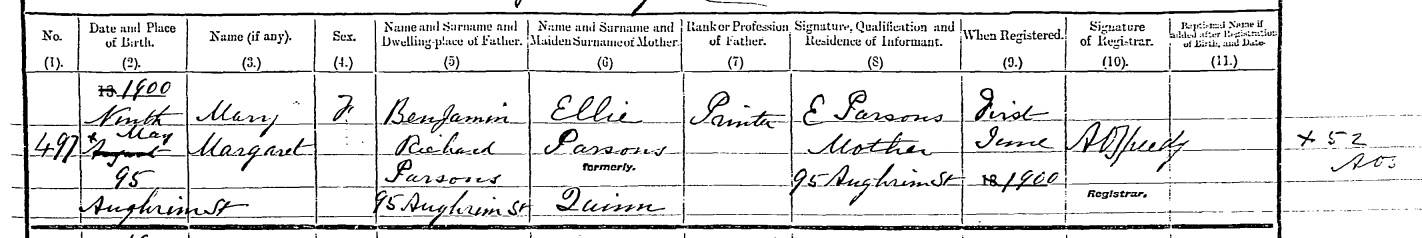 No.
(1).
Date and Place
of Birth.
(2).
Name (if any).
(3.)
Sex.
(4.)
Name and Surname and
Dwelling-place of Father.
(5)
Name and Surname and
Maiden Surname of Mother.
(6)
Rank or Profession
of Father.
(7)
Signature, Qualification and
Residence of Informant.
(8)
When Registered.
(9.)
Signature
of Registrar.
(10).
Baptismal Name if
added after Registration
of Birth, and Date.
(11.)
497
18 1900
Ninth
x May
August
95
Aughrim St
Mary
Margaret
F
Benjamin
Richard
Parsons
95 Aughrim St
Ellie
Parsons
formerly.
Quinn
Printer
E Parsons
Mother
95 Aughrim St
First
June
18 1900
Registrar.
x 52